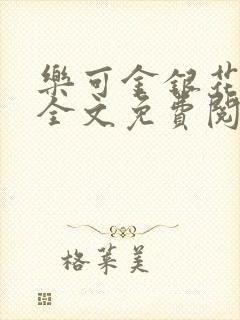 樂可金銀花
全文免費閱
格萊美